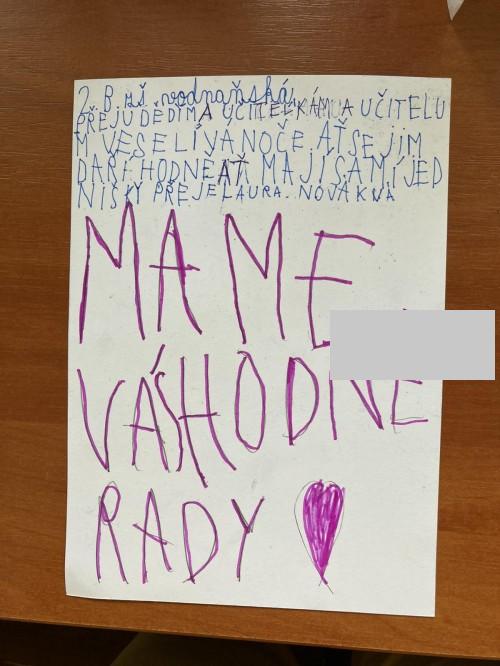 2. B zš vodňaňská
PŘEJU DĚDÍMA UČITELKÁM A UČITELU
M VESELÍ VANOČE. AŤ SE JIM
DAŘÍ HODNE AŤ MAJÍ SAMÍ JED
NIŠKY PŘEJE LAURA. NOVAKVA
MAME
VÁS HODNE
RADY